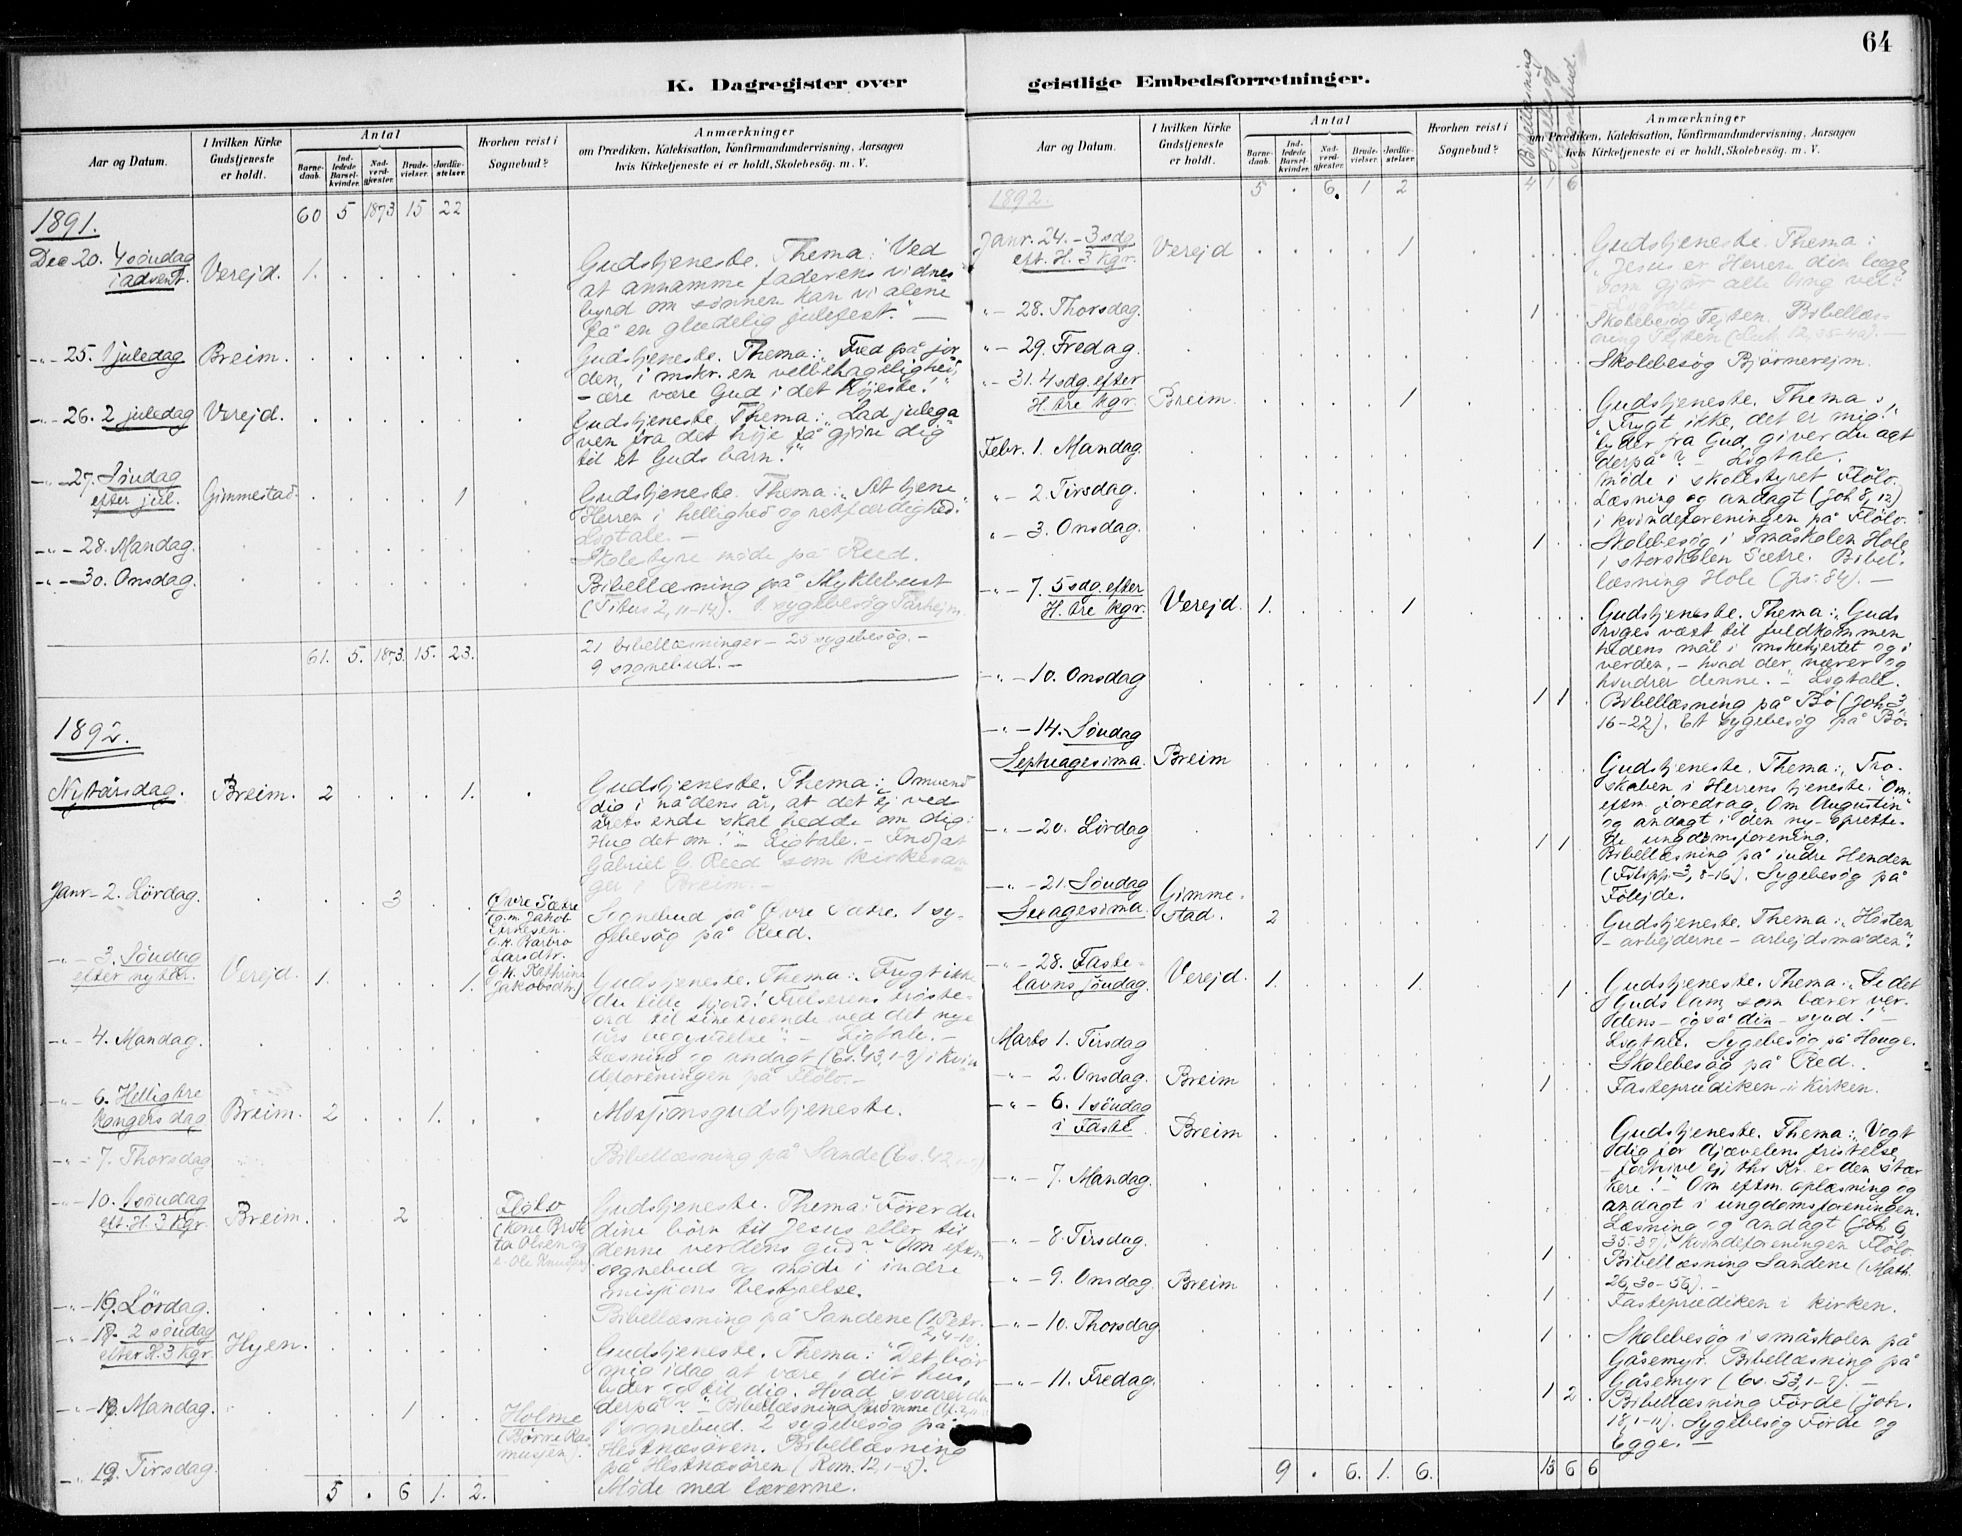 64
K. Dagregister over geistlige Embedsforretninger.
Aar og Datum.
I hvilken Kirke Gudstjeneste er holdt.
Antal
Barnedaab.
Indledede Barselkvinder.
Nadverdgjæster.
Brudevielser.
Jordfæstelser.
Hvorhen reist i Sognebud?
Anmærkninger
om Prædiken, Katekisation, Konfirmandundervisning, Aarsagen
hvis Kirketjeneste ei er holdt, Skolebesög. m. V.
60 5 1873 15 22
1891.
Dec 20. 4 söndag i advent. Verejd. 1.
Gudstjeneste. Thema: Ved
at annamme faderens vidnes
byrd om sönnen kan vi alene
få en glædelig julefest." —
-"- 25. 1 juledag Breim.
Gudstjeneste. Thema: „Fred på jor
den, i mskr. en velbehagelighed,
– ære være Gud i det höjeste!"
-"- 26. 2 juledag Verejd.
Gudstjeneste. Thema: „Lad julega
ven fra det höje få gjöre dig
til et Guds barn!"
-"- 27. Söndag efter jul. Gimmestad. 1
Gudstjeneste. Thema: „At tjene
Herren i hellighed og retfærdighed."
Ligtale. –
-"- 28. Mandag.
Skolestyremöde på Reed.
-"- 30. Onsdag.
Bibellæsning på Myklebust
(Titus 2, 11-14). 1 sygebesög Tarhejm.
61. 5. 1873. 15. 23.
21 bibellæsninger – 25 sygebesög. –
9 sognebud. –
1892.
Nytårsdag. Breim. 2 1.
Gudstjeneste. Thema: „Omvend
dig i nådens år, at det ej ved
årets ende skal hedde om dig:
Hug det om!" – Ligtale. – Indsat
Gabriel G. Reed som kirkesan
ger i Breim. –
Janr – 2. Lördag. 3
Övre Sætre
(g.m. Jakob
g.k. Barbro
Larsdtr.
g.k. Kathrine
Jakobsdtr)
Sognebud på Övre Sætre. 1 sy-
gebesög på Reed.
-"- 3. Söndag efter nytår. Verejd. 1. 1.
Gudstjeneste. Thema: „Frygt ikke
du lille hjord! Frelserens tröste-
ord til sine troende ved det nye
års begyndelse". – Ligtale. –
-"- 4. Mandag.
Læsning og andagt (Es. 43, 1-2) i kvin
deforeningen på Flölo. –
-"- 6. Hellig tre kongers dag Breim. 2 1.
Missionsgudstjeneste.
-"- 7. Thorsdag
Bibellæsning på Sande (Es. 42
-"- 10. 1 söndag eft. H. 3 kgr. Breim. 2
Flölo
(Kone Brit
ta Olsen og
e. Ole Knudsen)
Gudstjeneste. Thema: „Förer du
dine börn til Jesus eller til
denne verdens gud?" Om eftm.
sognebud og möde i indre
missions bestyrelse.
-"- 16. Lördag.
Bibellæsning på Sandene (1 Petr.
2, 4-10.
-"- 17. 2 söndag efter H. 3 kgr. Hyen.
Gudstjeneste. Thema: "Det bör
mig idag at være i dit hus,
lyder og til dig. Hvad svarer du
derpå?" – Bibellæsning
-"- 18. Mandag. 1
Holme
(Börre Ras
mussen).
1 sognebud. 2 sygebesög på
Hestnesören. Bibellæsning
på Hestnesören (Rom. 12, 1-5).
-"- 19. Tirsdag.
Möde med lærerne.
5 . 6 1. 2.
Aar og Datum.
I hvilken Kirke Gudstjeneste er holdt.
Antal
Barnedaab.
Indledede Barselkvinder.
Nadverdgjæster.
Brudevielser.
Jordfæstelser.
Hvorhen reist i Sognebud?
Bibellæsning
Sygebesög
Sognebud.
Anmærkninger
om Prædiken, Katekisation, Konfirmandundervisning, Aarsagen
hvis Kirketjeneste ei er holdt, Skolebesög. m. V.
1892. 5 . 6. 1 2 4 1 6
Janr. 24. – 3 sdg. eft. H. 3 kgr. Verejd 1
Gudstjeneste. Thema:
„Jesus er Herren din læge,
som gjör alle ting vel."
Ligtale.
-"- 28. Thorsdag. 1
Skolebesög Tejten. Bibellæs-
ning Tejten (Luk. 12, 35-40). –
-"- 29. Fredag.
Skolebesög Bjørnerejm.
-"- 31. 4 sdg. efter H. tre kgr. Breim. 1
Gudstjeneste. Thema:
„Frygt ikke, det er mig!
lyder fra Gud, giver du agt
derpå? – Ligtale.
Febr. 1. Mandag.
Möde i skolestyret Flölo.
-"- 2. Tirsdag.
Læsning og andagt (Joh 8, 12)
i kvindeforeningen på Flölo.
-"- 3. Onsdag. 1
Skolebesög i småskolen Hole
i storskolen Sætre. Bibel-
læsning Hole (ps: 84). –
-"- 7. 5 sdg. efter H. tre kgr. Verejd. 1. 1
Gudstjeneste. Thema: „Guds
riges væxt til fuldkommen
hedens mål i mskehjertet og i
verden, – hvad der nærer og
hindrer denne." – Ligtale.
-"- 10. Onsdag 1 1
Bibellæsning på Bö (Joh. 3,
16-22). Et sygebesög på Bö.
-"- 14. Söndag Septuagesima. Breim
Gudstjeneste. Thema: „Tro-
skaben i Herrens tjeneste." Om
eftm. foredrag „Om Augustin"
og andagt i den ny-oprette-
de ungdomsforening.
-"- 20. Lördag 1 1
Bibellæsning på indre Henden
(Filipp 3, 8-16). Sygebesög på
Föleide.
-"- 21. Söndag Sexagesima. Gimme-stad. 2
Gudstjeneste. Thema: „Hösten
– arbejderne – arbejdsmåden".
-"- 28. Faste-lavns söndag. Verejd. 1. 1. 1
Gudstjeneste. Thema: „Se det
Guds lam, som bærer ver-
dens – også din – synd!" –
Ligtale. Sygebesög på Hauge.
Marts 1. Tirsdag
Skolebesög på Reed.
-"- 2. Onsdag. Breim 1
Fasteprædiken i kirken.
-"- 6. 1 söndag i Faste. Breim
Gudstjeneste. Thema: „Vogt
dig for djævelens fristelse,
– fortvivl ej, thi Kr. er den stær
kere!" – Om eftm. oplæsning og
andagt i ungdomsforeningen.
-"- 7. Mandag.
Læsning og andagt (Joh 6,
35-37) i kvindeforeningen Flölo.
-"- 8. Tirsdag. 1
Bibellæsning Sandene (Math.
26, 30-56). –
-"- 9. Onsdag. Breim 1
Fasteprædiken i kirken.
-"- 10. Thorsdag 1
Skolebesög i småskolen på
Gåsemyr. Bibellæsning på
Gåsemyr (Es. 53, 1-7). –
-"- 11. Fredag. 1 2
Bibellæsning Förde (Joh.
18, 1-11). Sygebesög Förde og
Egge. –
9 . 6. 1. 6. 13 6 6